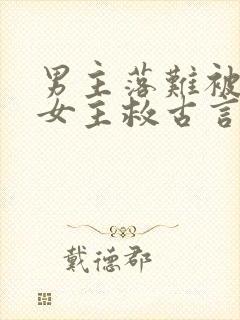 男主落難被
女主救古言
戴德郡